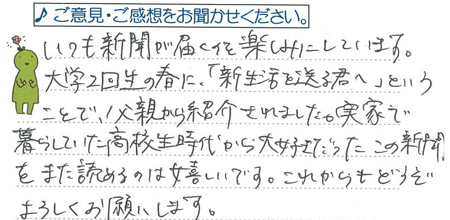 ♪ご意見・ご感想をお聞かせください。
いつも新聞が届くのを楽しみにしています。
大学2回生の春に、「新生活を送る君へ」という
ことで、父親から紹介されました。実家で
暮らしていた高校生時代から大好きだったこの新聞
をまた読めるのは嬉しいです。これからもどうぞ
よろしくお願いします。